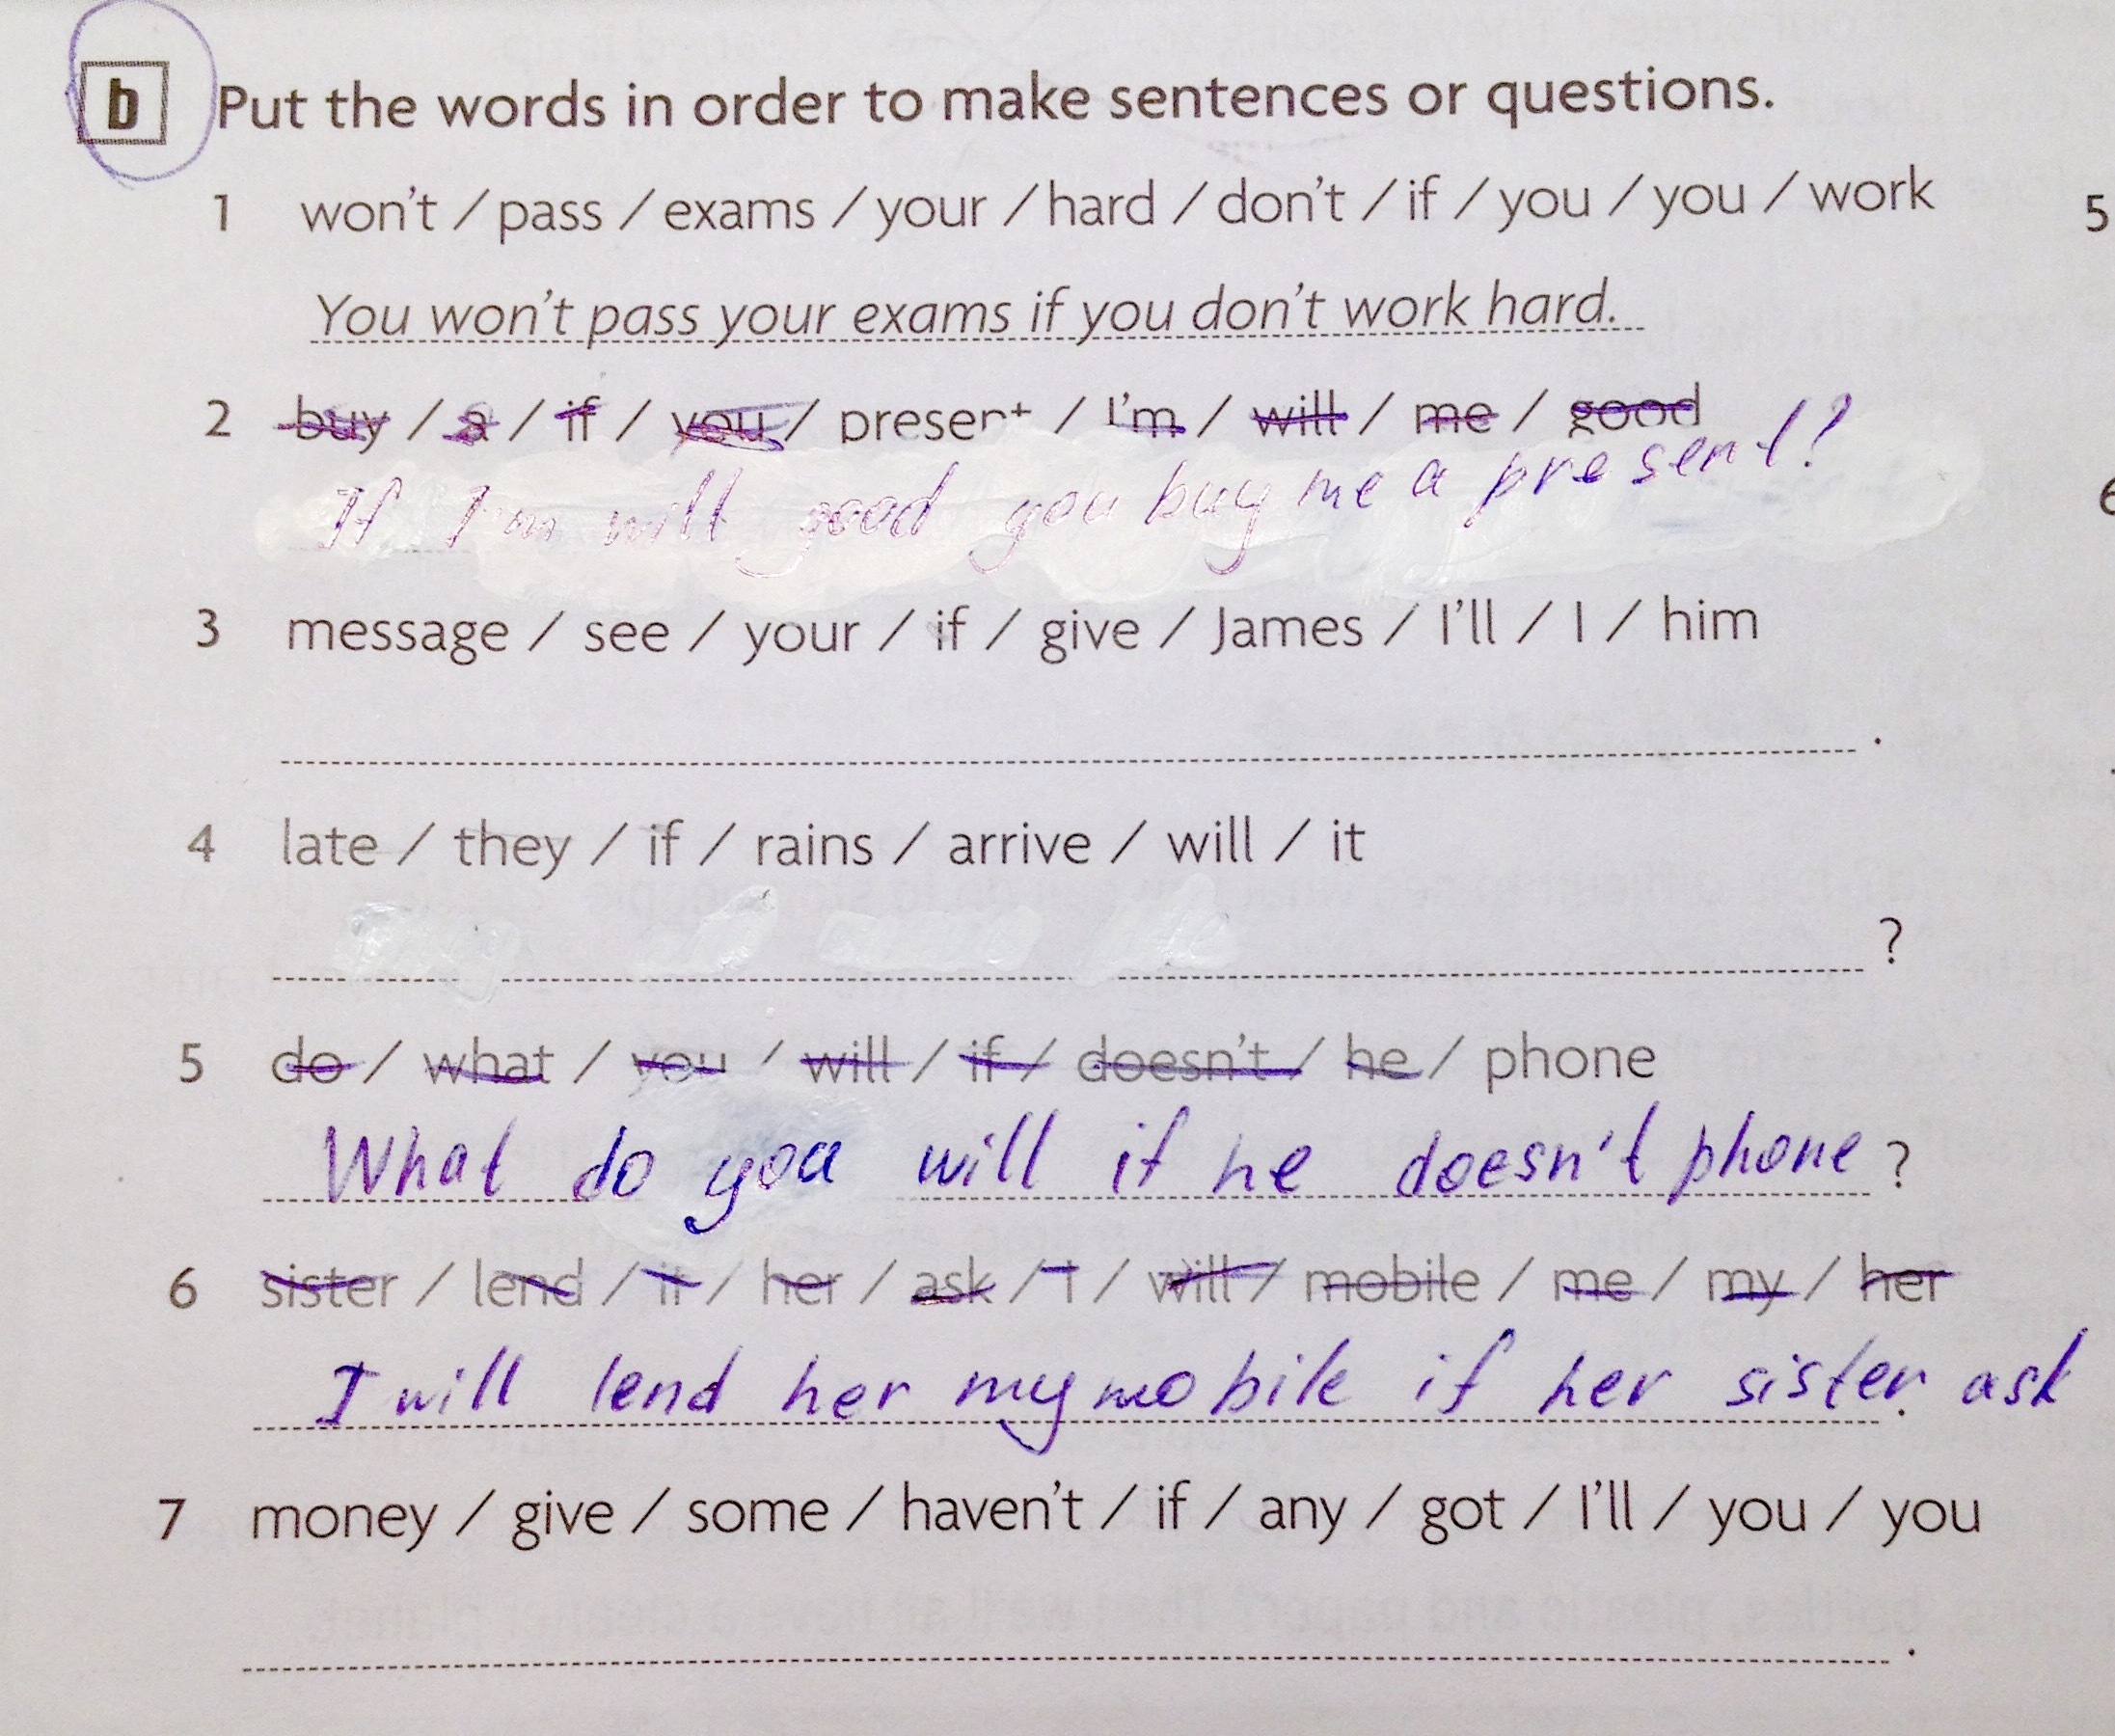 b Put the words in order to make sentences or questions.
1 won't / pass / exams / your / hard / don't / if / you / you / work
5
You won't pass your exams if you don't work hard.
2 buy / a / if / you / present / I'm / will / me / good
If I'm will good you buy me a present?
6
3 message / see / your / if / give / James / I'll / I / him
.
4 late / they / if / rains / arrive / will / it
?
5 do / what / you / will / if / doesn't / he / phone
What do you will if he doesn't phone ?
6 sister / lend / if / her / ask / I / will / mobile / me / my / her
I will lend her my mobile if her sister. ask
7 money / give / some / haven't / if / any / got / I'll / you / you
.